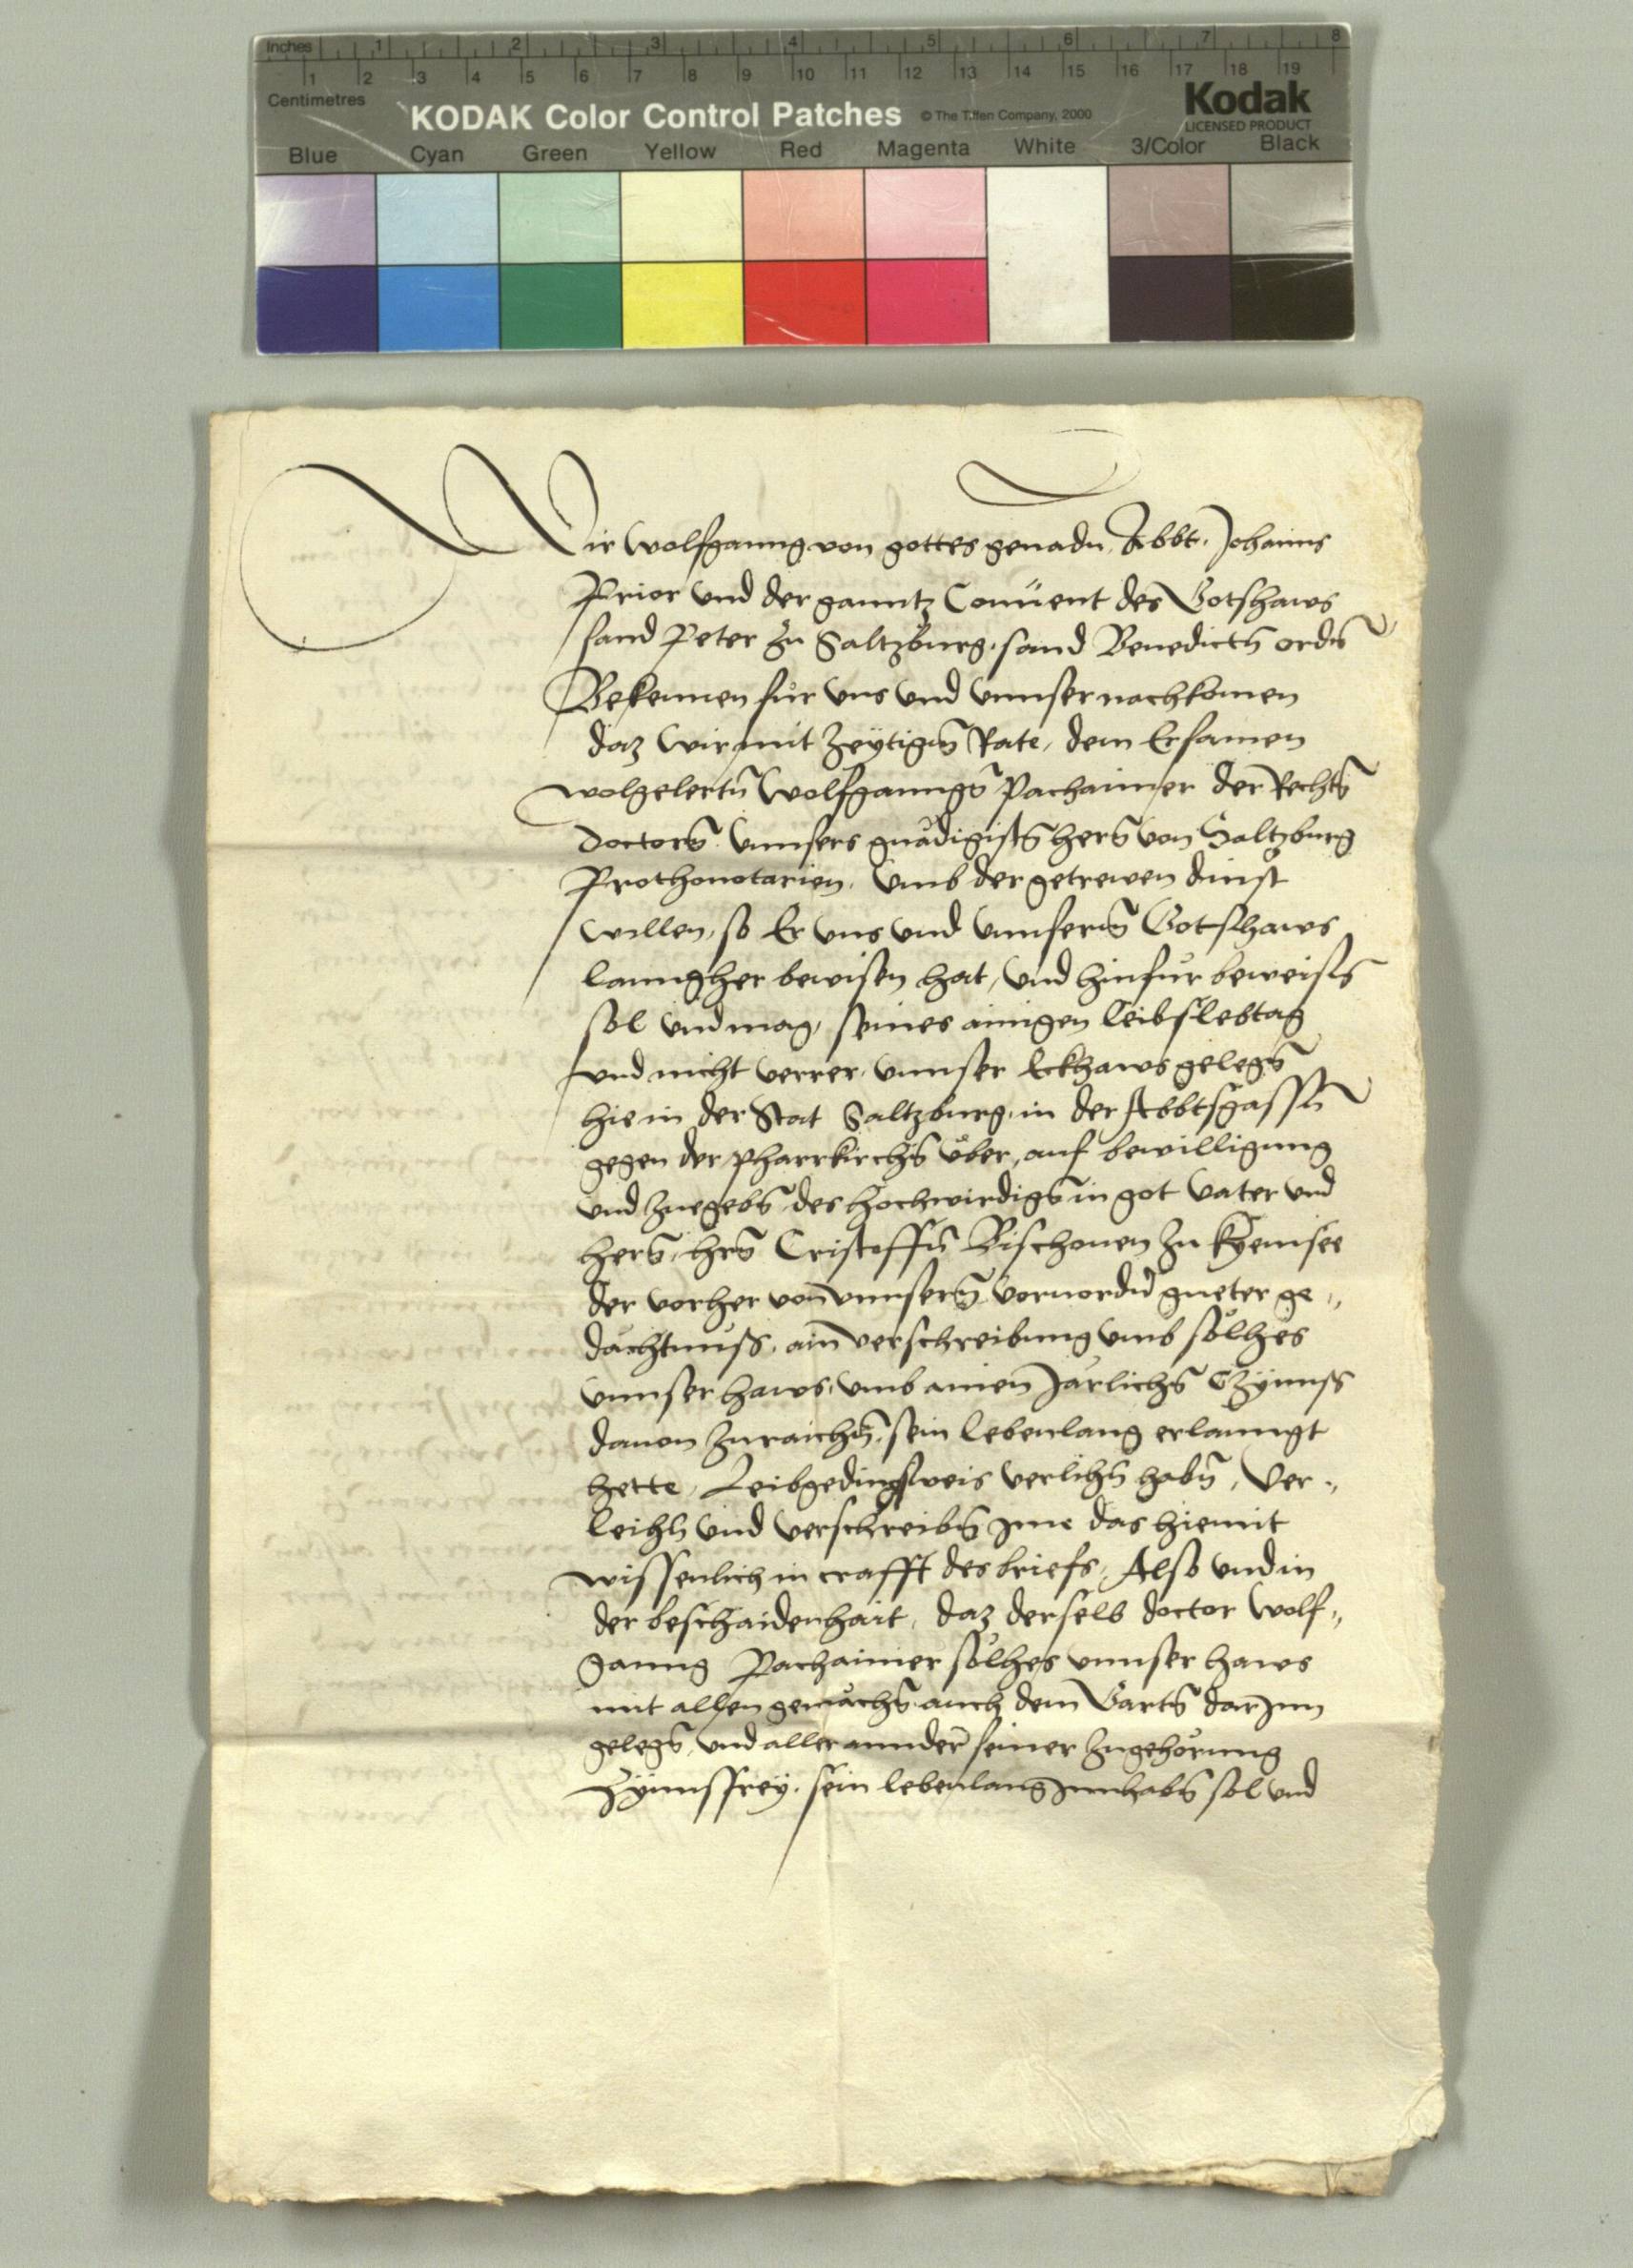 Inches 1 2 3 4 5 6 7 8
1 2 3 4 5 6 7 8 9 10 11 12 13 14 15 16 17 18 19
Centimetres
KODAK Color Control Patches © The Tiffen Company, 2000 Kodak
LICENSED PRODUCT
Blue Cyan Green Yellow Red Magenta White 3/Color Black
Wir Wolfganng von gottes genadn Abbt. Johanns
Prior und der ganntz Conuent des Gotshaws
sand Peter zu Saltzburg, sand Benedictn̄ ordn̄
Bekennen für uns und unnser nachkomen
daz wir mit zeytign̄ Rate, dem Ersamen
wolgelertn̄ Wolfganngn̄ Pachaimer der Rechtn̄
doctorn̄ unnsers gnädigistn̄ hern̄ von Saltzburg
Prothonotarien, umb der getrewen dinst
willen, so Er uns und unnserm̄ Gotshaws
lanngher bewisen hat, und hinfür beweisn̄
sol und mag, seines ainigen leibs lebtag
und nicht verrer, unnser Eckhaws gelegn̄
hie in der Stat Saltzburg, in der Abbtsgassn̄
gegen der pharrkirchn̄ über, auf bewilligung
und zuegebn̄ des hochwirdign̄ in got vater und
hern̄, hrn̄ Cristoffn̄ Bischouen zu Kyemsee
der vorher von unnserm̄ voruordn̄ gueter ge„
dächtnuss, ain verschreibung umb sölhes
unnser haws, umb ainen Järlichn̄ Czynnss
dauon zuraichn̄, sein lebenlang erlanngt
hette, Leibgedingsweis verlihn̄ habn̄, Ver„
leihn̄ und verschreibn̄ Ime das hiemit
wissenlich in crafft des briefs, Also und in
der beschaidenhait, daz derselb doctor Wolf„
ganng Pachaimer sölhes unnser haws
mit allen gemächn̄ auch dem Gartn̄ darInn
gelegn̄, und aller annder seiner zugehörung
Zynnssfrey, sein lebenlang Innhabn̄ sol und